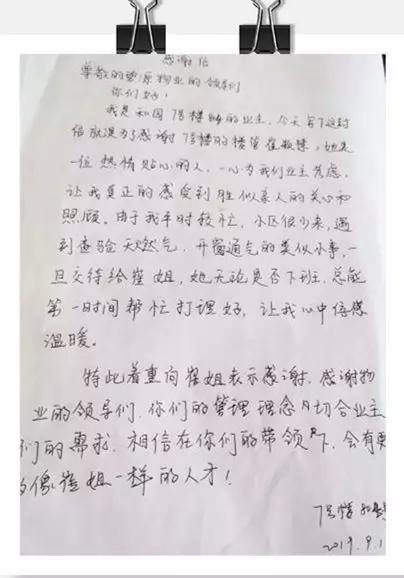 感谢信
尊敬的物业的领导们
你们好!
我是和园7号楼的业主,今天写下这封
信就是为了感谢7号楼的楼管崔,她是
一位热情贴心的人,一心为我们业主考虑,
让我真正的感受到胜似亲人的关心和
照顾。由于我平时较忙,小区很少来,遇
到查验天燃气,开窗通气的类似小事,一
旦交待给崔姐,她无论是否下班,总能
第一时间帮忙打理好,让我心中倍感
温暖。
特此着重向崔姐表示感谢,感谢物
业的领导们,你们的管理理念切合业主
们的需求,相信在你们的带领下,会有更
的像崔姐一样的人才!
7号楼
2019.9.1